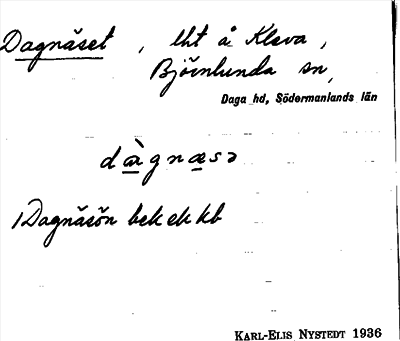 Dagnäset, lht å Kleva,
Björnlunda sn,
Daga hd, Södermanlands län
dàgnæsə
1Dagnäsön bek ek kb
KARL-ELIS NYSTEDT 1936